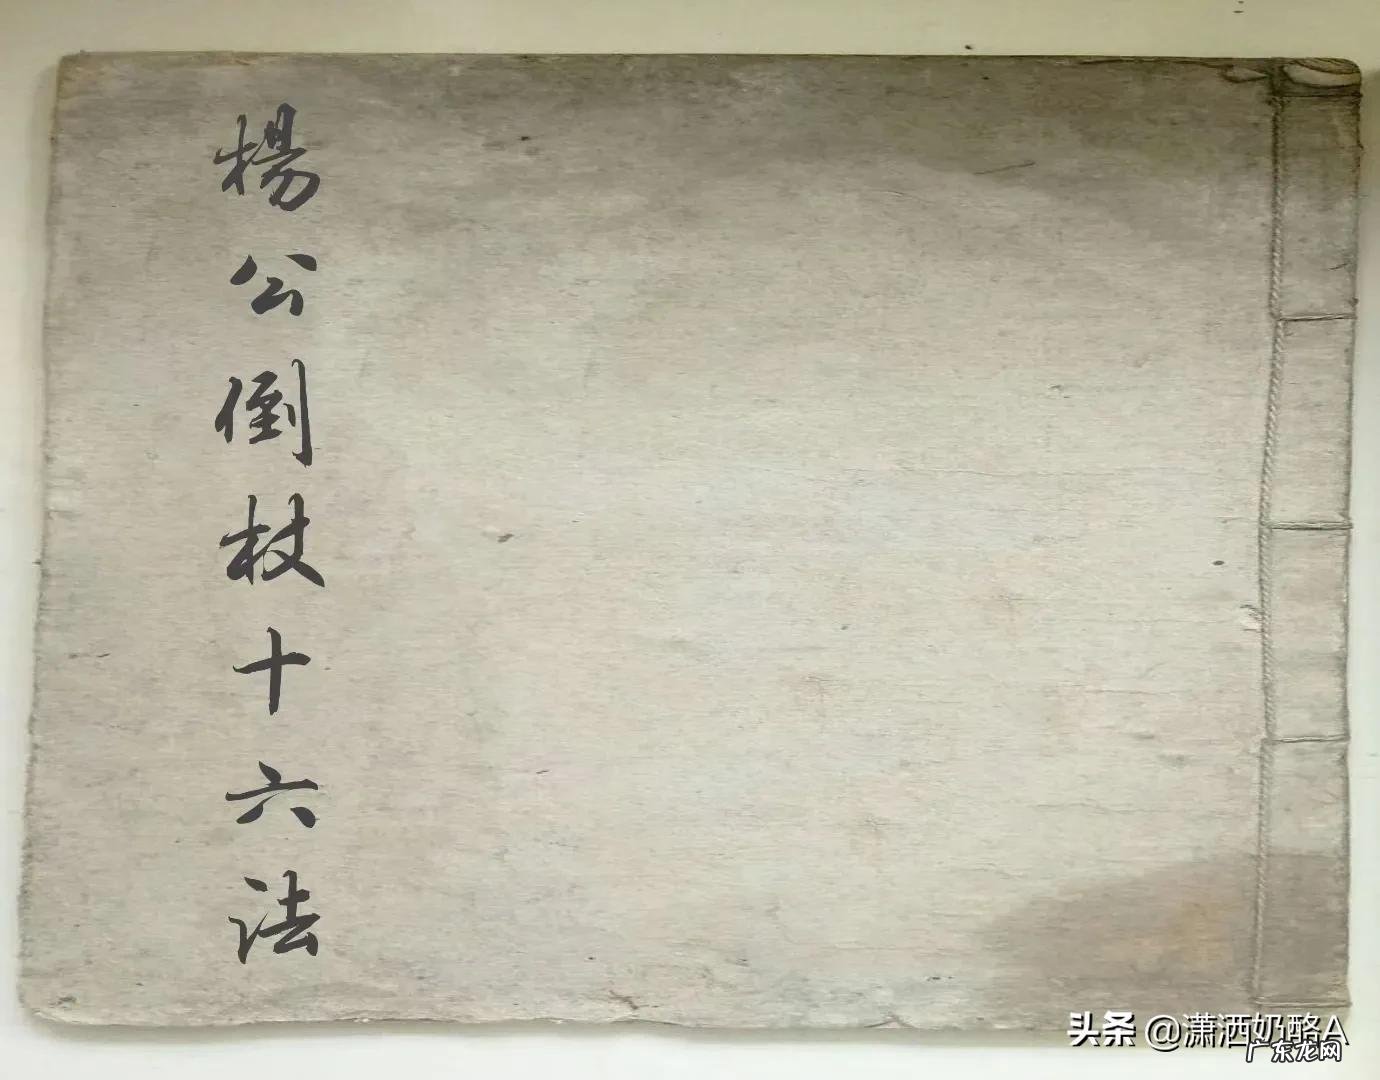 楊公倒杖十六法
头条 @潇洒奶酪A
广东龙网